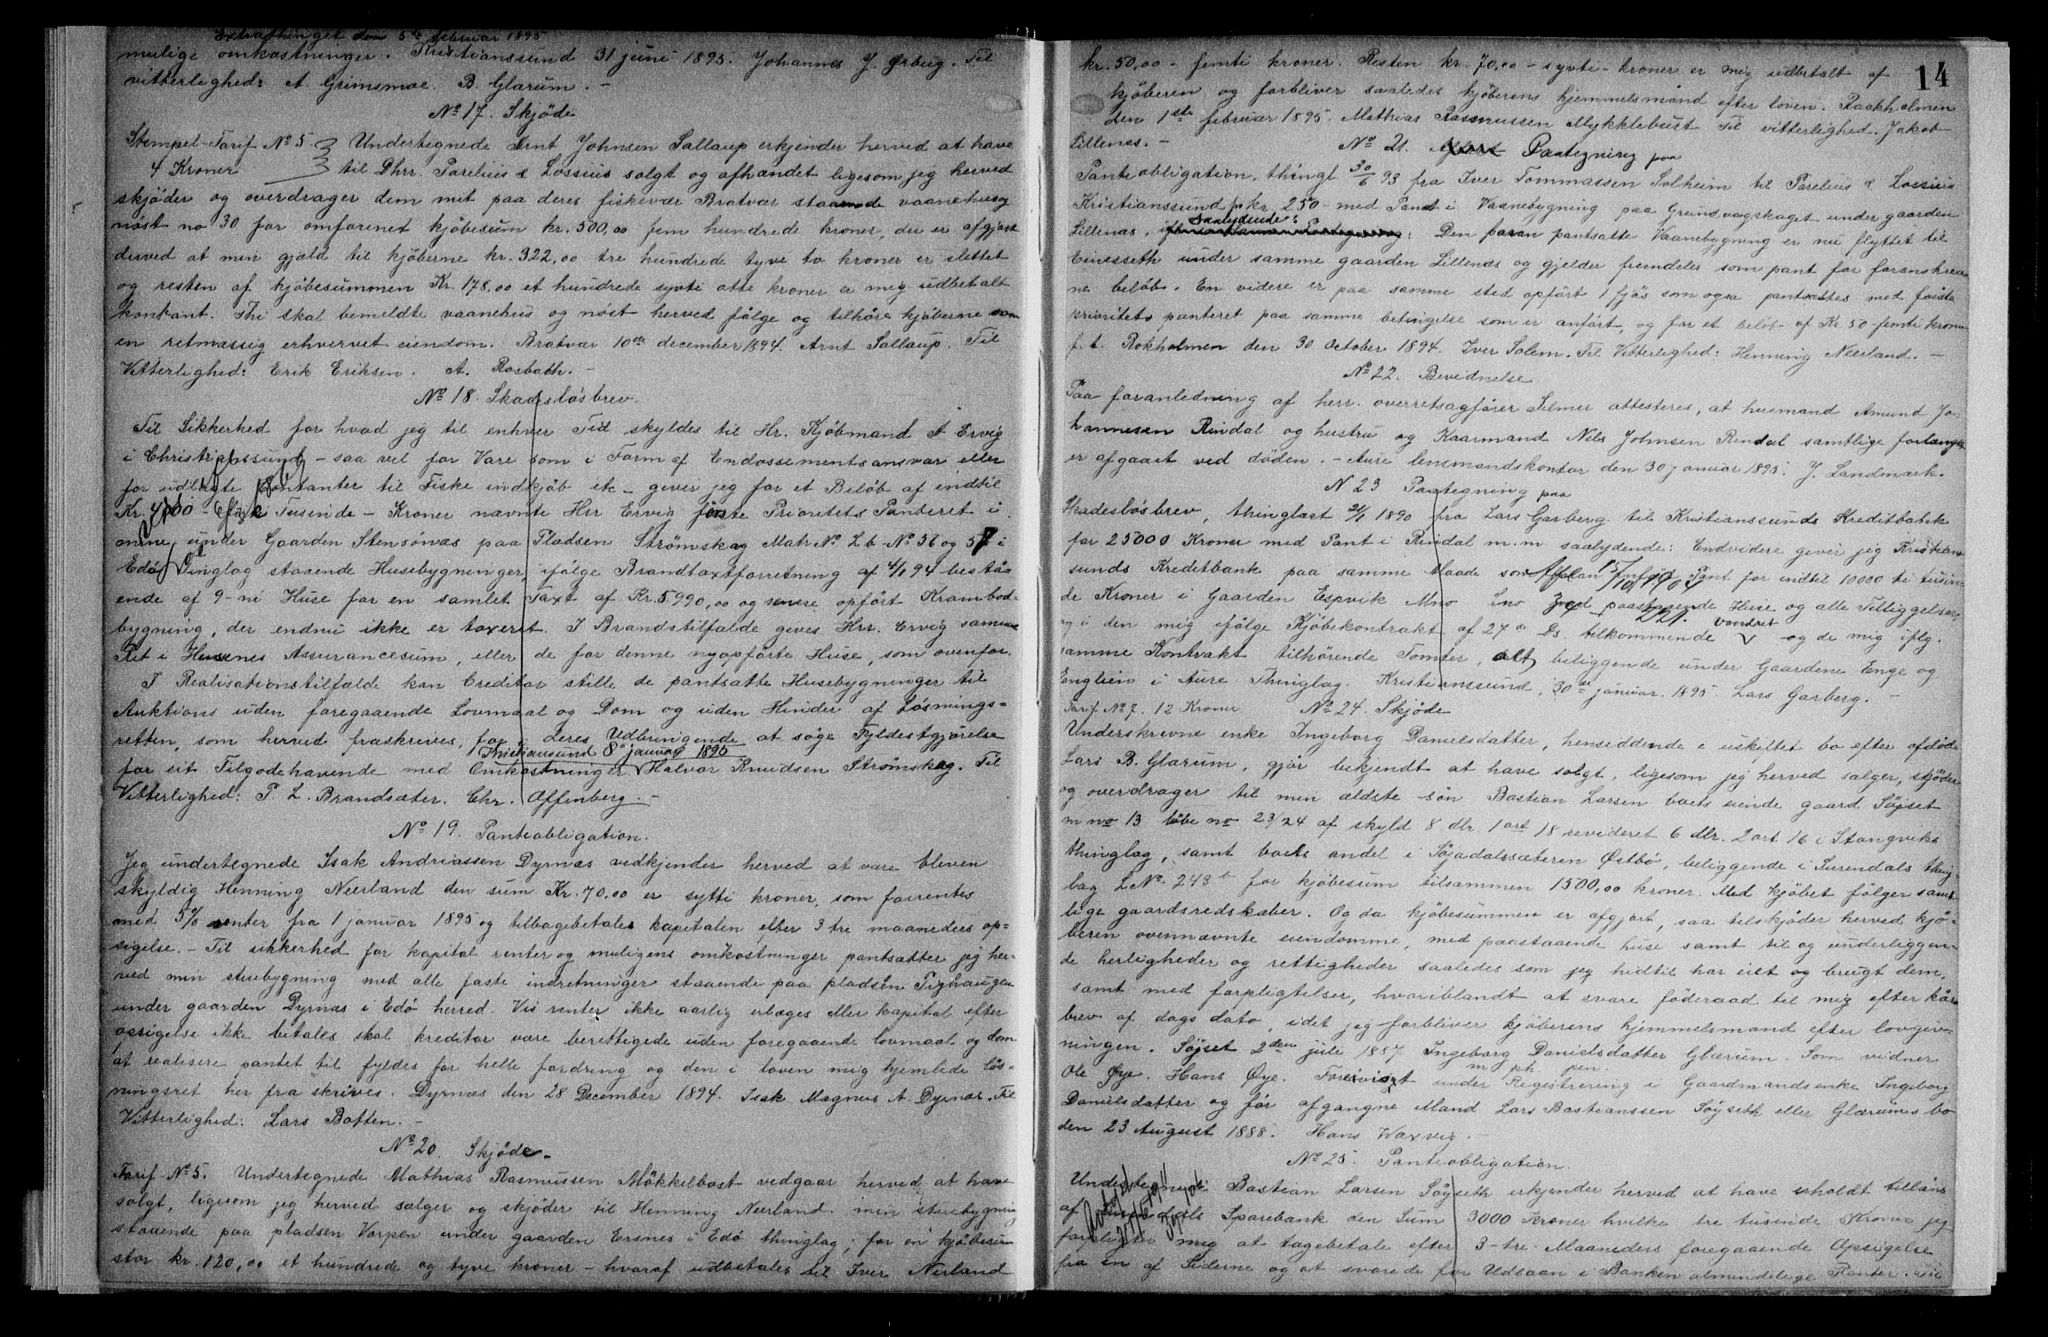 Extrathinget den 5te februar 1895
mulige omkostninger. Kristianssund 31 juni 1895. Johannes J. Ørbug. Til
vitterlighed: A. Grimsmoe. B. Glærum. -
No 17. Skjøde
Stempel-Tarif No 5 Undertegnede Arnt Johnsen Sallaup erkjender herved at have
4 Kroner til Dhrr. Parelius & Lossius solgt og afhændet ligesom jeg herved
skjøder og overdrager dem mit paa deres fiskevær Bratvær staaende vaanehus og
nøst no 30 for omforenet kjøbesum kr. 500,00 fem hundrede kroner, der er afgjort
derved at min gjæld til kjøberne kr. 322,00 tre hundrede tyve to kroner er slettet
og resten af kjøbesummen Kr. 178,00 et hundrede sytti otte kroner er mig udbetalt
kontant. Thi skal bemeldte vaanehus og nøst herved følge og tilhøre kjøberne som
en retmæssig erhvervet eiendom. Bratvær 10de december 1894. Arnt Sallaup. Til
Vitterlighed: Erik Eriksen. A. Rosbach. -
No 18. Skadesløsbrev.
Til Sikkerhed for hvad jeg til enhver Tid skyldes til Hr. Kjøbmand A Ervig
i Christianssund - saa vel for Vare som i Form af Endossementsansvar eller
for udlagte Contanter til Fiske indkjøb etc - giver jeg for et Beløb af indtil
Kr. 4000 - Tusende - Kroner nævnte Hrr Ervig første Prioritets Panteret i
mine under Gaarden Stensønæs paa Pladsen Strømskag Matr No Lb-No 56 og 57 i
Edø Tinglag staaende Husebygninger, ifølge Brandtaxtforretning af 4/1 94 bestaa-
ende af 9-ni Huse for en samlet Taxt af Kr. 5990,00 og senere opført Krambod-
bygning, der endnu ikke er taxeret. I Brandstilfælde gives Hrr. Ervig samme
Ret i Husenes Assurancesum, eller de for denne nyopførte Huse, som ovenfor.
I Realisationstilfælde kan Creditor stille de pantsatte Husebygninger til
Auktions uden foregaaende Lovmaal og Dom og uden Hinder af Løsnings-
retten, som herved fraskrives, for i deres Udbringende at søge Fyldestgjørelse
Christianssund 8de januar 1895
for sit Tilgodehavende med Omkostninger Halvor Knudsen Strømskag. Til
Vitterlighed: P. L. Brandsæter. Chr. Offenberg. -
No 19. Panteobligation.
Jeg undertegnede Isak Andriassen Dyrnæs vedkjender herved at være bleven
skyldig Henning Neerland den sum Kr. 70,00 er sytti kroner, som forrentes
med 5% renter fra 1 januar 1895 og tilbagebetales kapitalen efter 3 tre maaneders op-
sigelse. - Til sikkerhed for kapital renter og muligens omkostninger pantsætter jeg her-
ved min stuebygning med alle faste indretninger staaende paa pladsen Tighaugen
under gaarden Dyrnæs i Edø herred. Vis renter ikke aarlig erlægges eller kapital efter
opsigelse ikke betales skal kreditor være berettigede uden foregaaende lovmaal og dom
at realisere pantet til fyldes for helle fordring og den i loven mig hjemlede løs-
ningsret her fra skrives. Dyrnæs den 28 December 1894. Isak Magnus A Dyrnæs. Til
Vitterlighed: Lars Botten. -
No 20. Skjøde. -
Tarif No 5. Undertegnede Mathias Rasmussen Møkkelbost vedgaar herved at have
solgt, ligesom jeg herved sælger og skjøder til Henning Neerland min stuebygning
staaende paa pladsen Vorpen under gaarden Ersnes i Edø thinglag; for en kjøbesum
stor kr. 120,00 et hundrede og tyve kroner - hvoraf udbetales til Iver Nerland
14
kr. 50,00 - femti kroner. Resten kr. 70,00 - sytti - kroner er mig udbetalt af
kjøberen og forbliver saaledes kjøberens hjemmelsmand efter loven. Raakholmen
den 1ste februar 1895. Mathias Rasmussen Mykklebust Til vitterlighed. Jakob
Lillenes. - No 21. Paategning paa
Panteobligation, thingl. 30/6 93 fra Iver Tommassen Solheim til Parelius & Lossius
Kristianssund pr kr. 250 - med Pant i Vaanebygning paa Grundvogskaget under gaarden
Lillenæs, saalydende: Den foran pantsatte Vaanebygning er nu flyttet til
Einesseth under samme gaarden Lillenæs og gjelder fremdeles som pant for foranskrev-
ne beløb. En videre er paa samme sted opført 1 fjøs som ogsa pantsættes med første
prioritets panteret paa samme betingelse som er anført, og for et beløb af Kr 50 femti kroner
f. t. Rokholmen den 30 October 1894. Iver Solem. Til Vitterlighed: Henning Neerland. -
No 22. Bevidnelse
Paa foranledning af herr. overretsagfører Selmer attesteres, at husmand Amund Jo-
hannesen Rindal og hustru og Kaarmand Nils Johnsen Rindal samtlige forlængst
er afgaaet ved døden. - Aure lensmandskontor den 30 januar 1895. J. Landmark.
N 23 Paategning paa
Skadesløsbrev, thinglæst 21/1 1890 fra Lars Garberg til Kristianssunds Kreditbank
for 25000 Kroner med Pant i Rindal m.m saalydende: Endvidere giver jeg Kristian-
sunds Kreditbank paa samme Maade som Pant for indtil 10000 ti tusin-
de Kroner i Gaarden Espvik Mno Lno med paastaaende Huse og alle Tilliggelser,
og i den mig ifølge Kjøbekontrakt af 27de Ds. tilkommende vandret og de mig iflg.
samme Kontrakt tilhørende Tomter, alt beliggende under Gaardene Enge og
Englien i Aure Thinglag. Kristianssund, 30de januar 1895 Lars Garberg. -
Tarif No 7. 12 Kroner No 24. Skjøde
Underskrevne enke Ingeborg Danielsdatter, hensiddende i uskiftet bo efter afdøde
Lars B. Glærum, gjør bekjendt at have solgt, ligesom jeg herved sælger, skjøder
og overdrager til min ældste søn Bastian Larsen boets eiende gaard Søjset
m no 13 løbe no 23/24 af skyld 8 dlr 1 ort 18 s revideret 6 dlr. 2 ort 16 i Stangviks
thinglag, samt boets andel i Søjadalssæteren Østbø, beliggende i Surendals thing-
lag LNo. 243b for kjøbesum tilsammen 1500,00 kroner. Med kjøbet følger samt-
lige gaardsredskaber. Og da kjøbesummen er afgjort, saa tilskjøder herved kjø-
beren ovennævnte eiendomme, med paastaaende huse samt til og underliggen-
de herligheder og rettigheder saaledes som jeg hidtil har eiet og brugt dem,
samt med forpligtelser, hvoriblandt at svare føderaad til mig efter kår
brev af dags dato, idet jeg forbliver kjøberens hjemmelsmand efter lovgiv-
ningen. Søjset 2den juli 1887 Ingeborg Danielsdatter Glærum. Som vidner
m. ph. pen.
Ole Øye. Hans Øye. Forevist under Registrering i Gaardmandsenke Ingeborg
Danielsdatter og før afgangne Mand Lars Bastianssen Søyseth eller Glærums bo
den 23 August 1888. Hans Waxvig. -
No 25. Panteobligation.
Undertegnede Bastian Larsen Søyseth erkjender herved at have erholdt tillåns
af Sparebank den Sum 3000 Kroner hvilke tre tusende Kroner jeg
forpligter mig at tagebetale efter 3-tre. Maaneders foregaaende Opsigelse
fra en af Siderne og at svare de for Udlaan i Banken almindelige Renter. Til